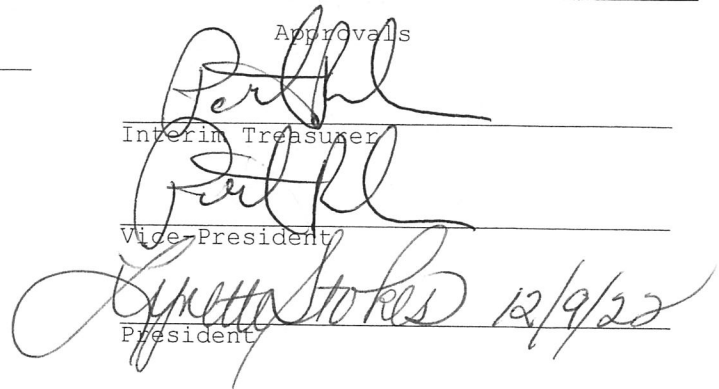 Approvals
Interim Treasurer
Vice-President
Lynette Stokes 12/9/22
President